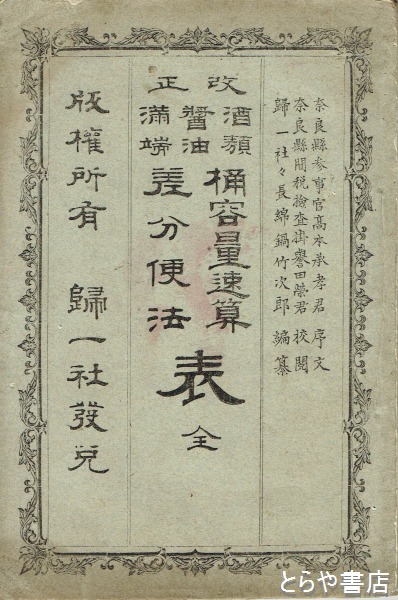 奈良縣參事官高木承孝君 序文
奈良縣間税檢査掛譽田榮君 校閲
歸一社々長綿鍋竹次郎 編纂
改正
酒類醬油桶容量速算
滿端差分便法
表 全
版權所有 歸一社發兌
とらや書店